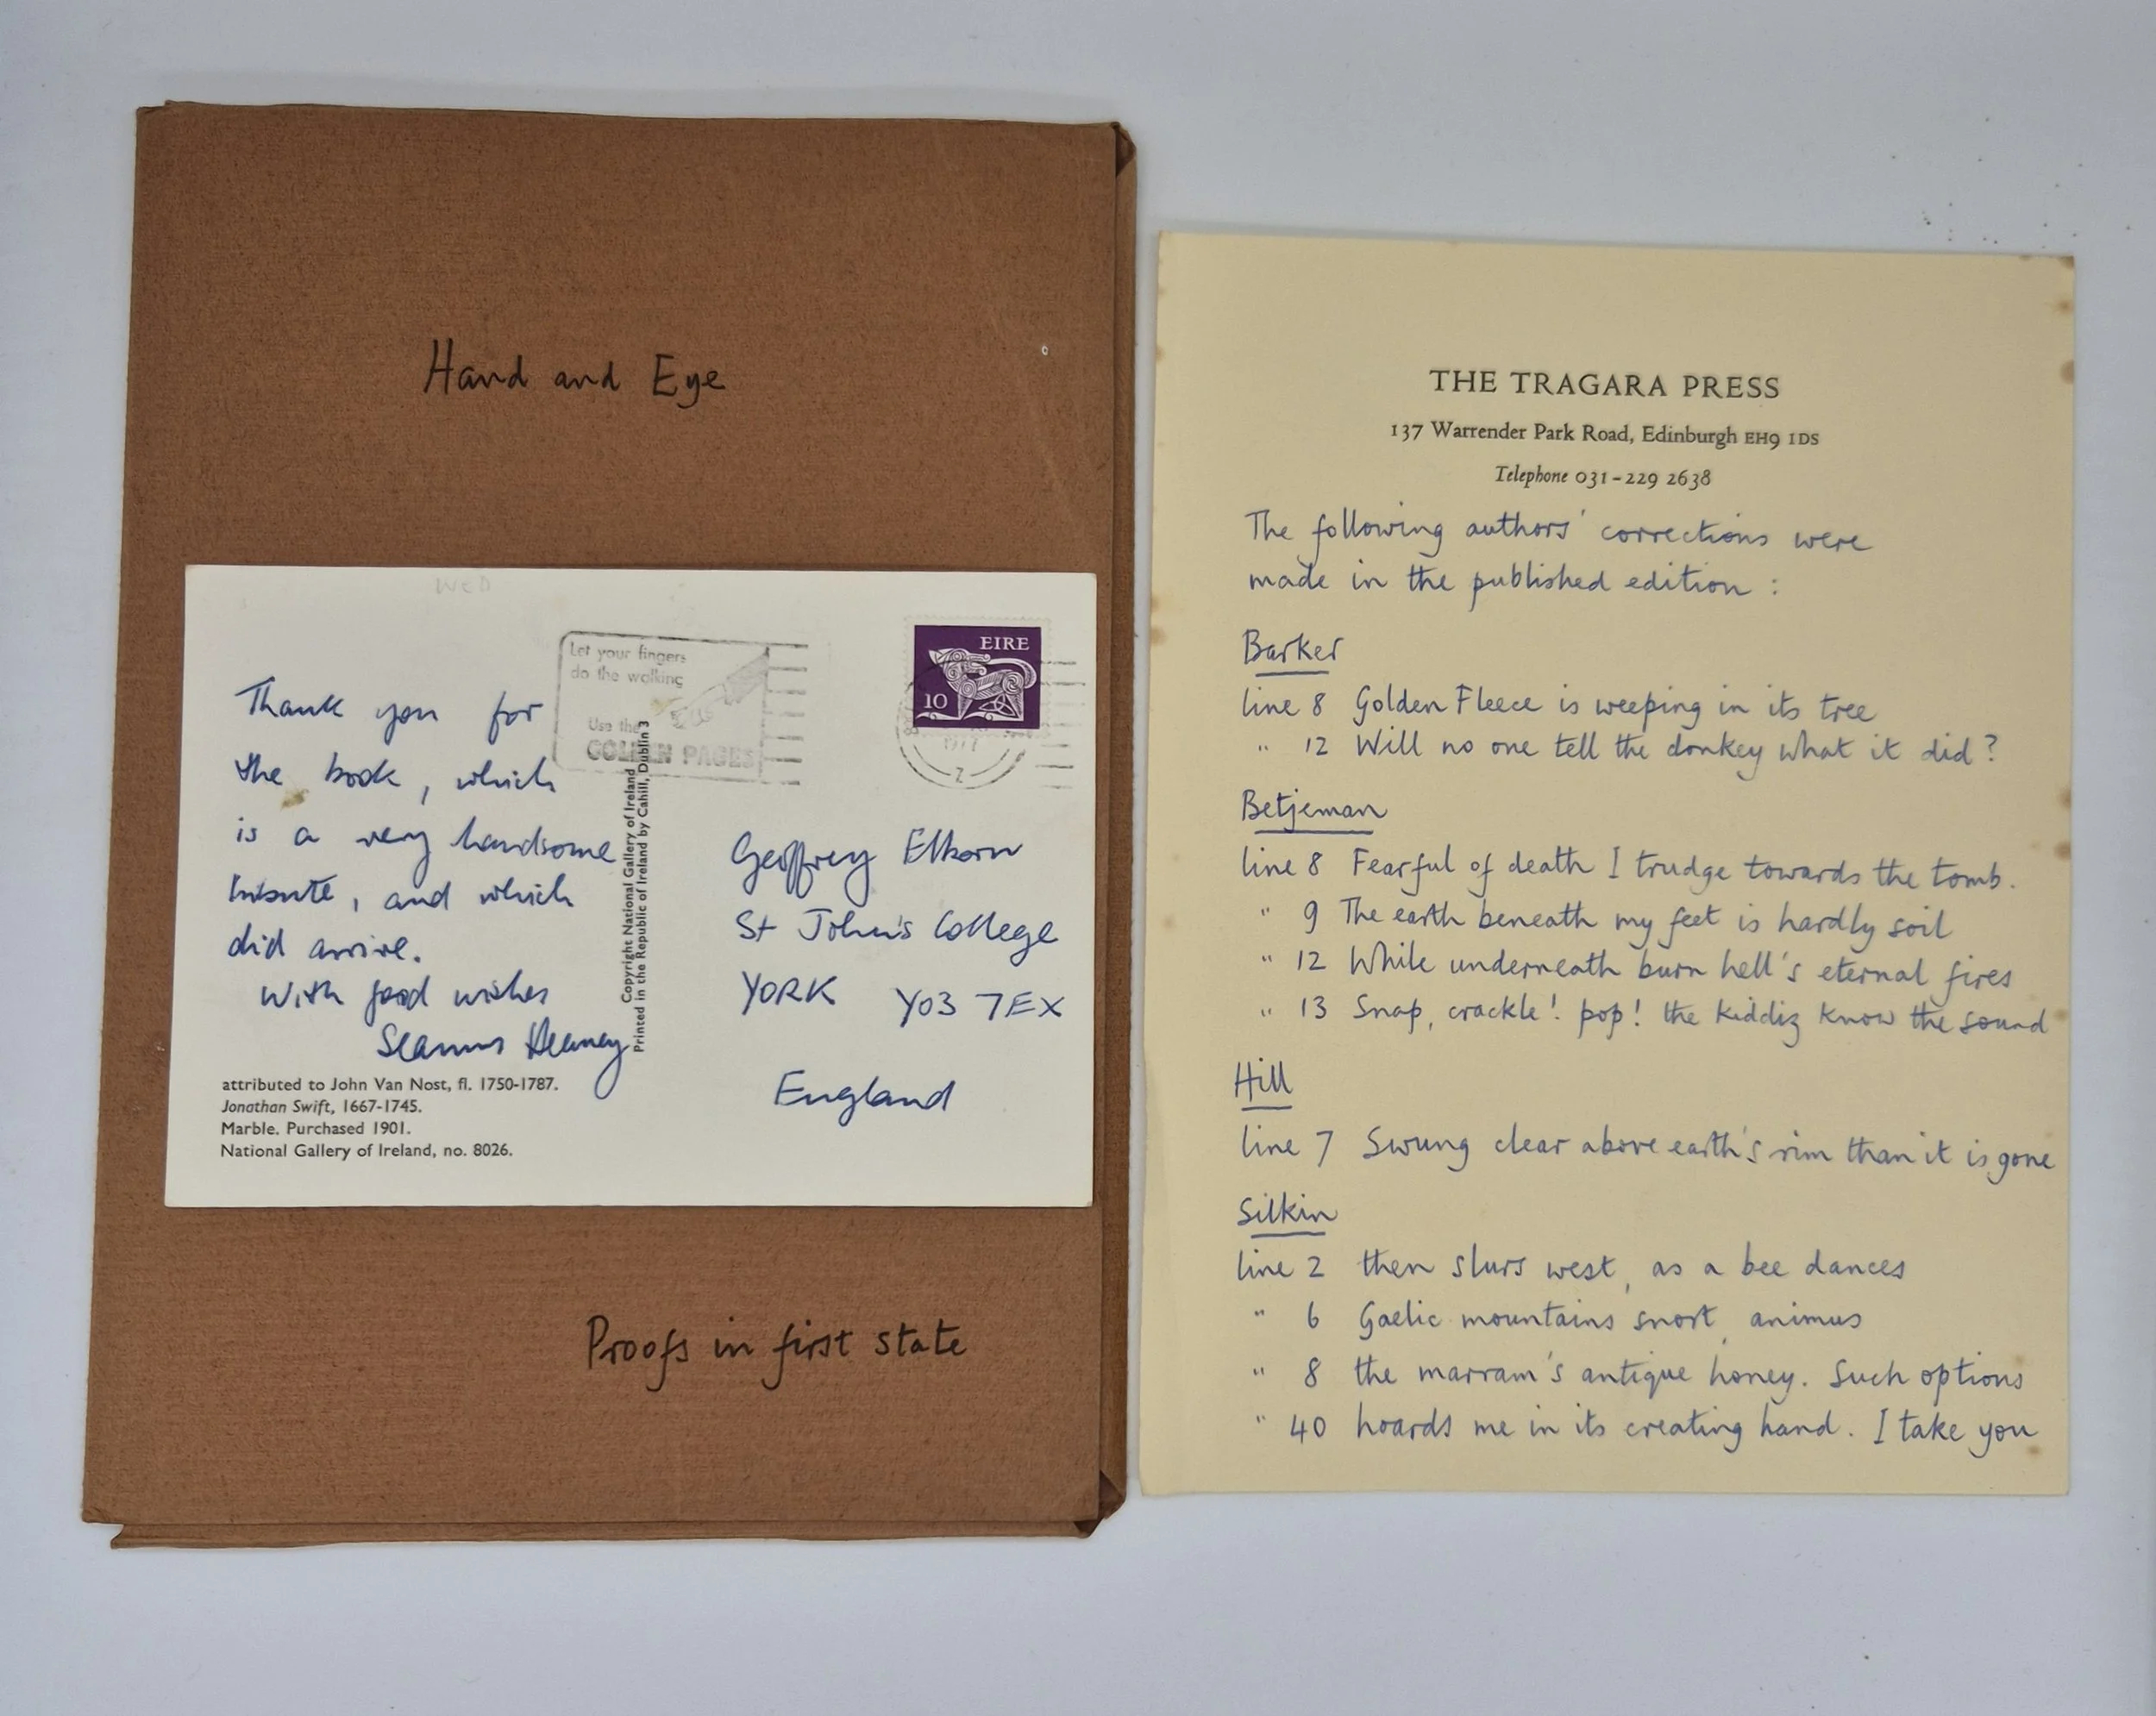 Hand and Eye
WED
Let your fingers
do the walking
Use the
GOLDEN PAGES
EIRE
10
1977
2
Thank you for
the book, which
is a very handsome
tribute, and which
did arrive.
With good wishes
Seamus Heaney
Copyright National Gallery of Ireland
Printed in the Republic of Ireland by Cahill, Dublin 3
attributed to John Van Nost, fl. 1750-1787.
Jonathan Swift, 1667-1745.
Marble. Purchased 1901.
National Gallery of Ireland, no. 8026.
Geoffrey Elborn
St John's College
YORK YO3 7EX
England
Proofs in first state
THE TRAGARA PRESS
137 Warrender Park Road, Edinburgh EH9 1DS
Telephone 031-229 2638
The following authors' corrections were
made in the published edition :
Barker
line 8 Golden Fleece is weeping in its tree
" 12 Will no one tell the donkey what it did?
Betjeman
line 8 Fearful of death I trudge towards the tomb.
" 9 The earth beneath my feet is hardly soil
" 12 While underneath burn hell's eternal fires
" 13 Snap, crackle! pop! the kiddiz know the sound
Hill
line 7 Swung clear above earth's rim than it is gone
Silkin
line 2 then slurs west, as a bee dances
" 6 Gaelic mountains snort, animus
" 8 the marram's antique honey. Such options
" 40 hoards me in its creating hand. I take you